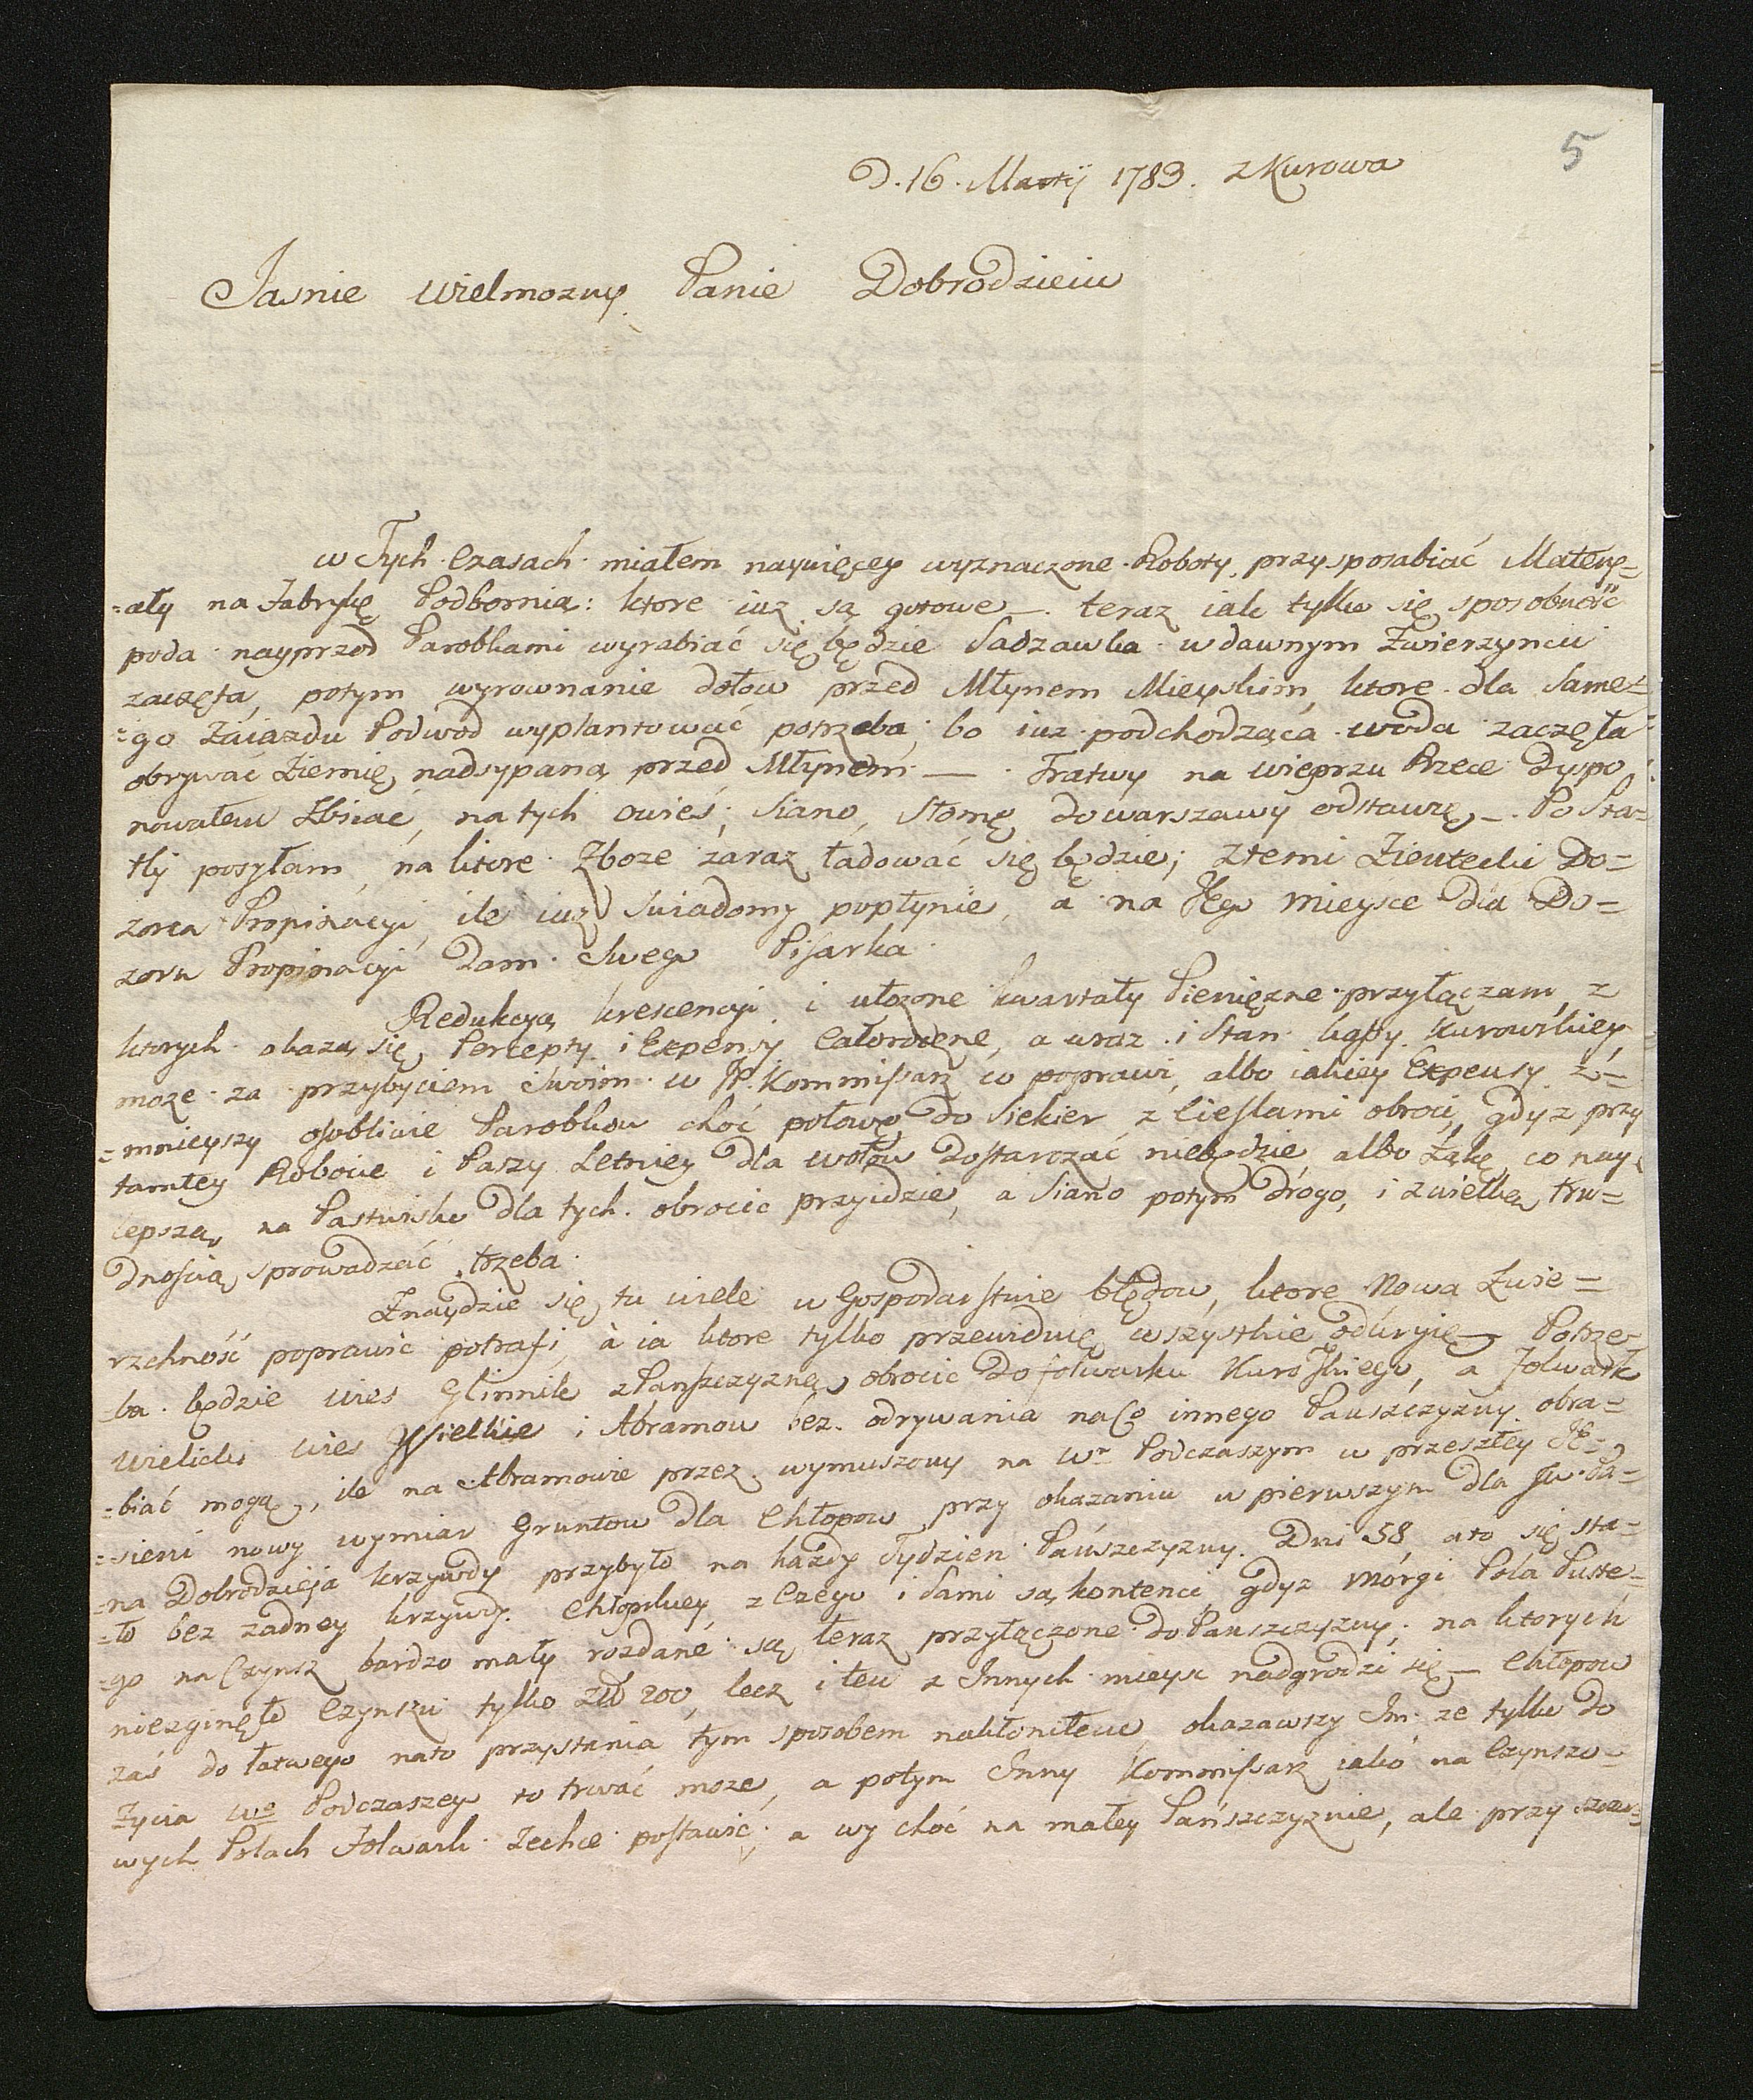 5
D. 16. Martij 1783. z Kurowa
Jasnie wielmozny Panie Dobrodzieiu
w Tych Czasach miałem naywięcey wyznaczone Roboty, przysposabiać Matery=
=ały na Fabrykę Podbornią: ktore iuz są gotowe —. teraz iak tylko się sposobność
poda nayprzod Parobkami wyrabiać się będzie Sadzawka w dawnym Zwierzyncu
zaczęta, potym wyrownanie dołow przed Młynem Mieyskim, ktore dla same=
=go Zaiazdu Podwod wyplantować potrzeba, bo iuz podchodząca woda zaczęła
obrywać Ziemię nadsypaną przed Młynem — Tratwy na wieprzu Rzece dyspo
nowałem Zbiiać, na tych owies, Siano, Słomę do warszawy odstawię —. Po Sta=
tki posyłam, na ktore Zboze zaraz ładować się będzie; ztemi Zientecki Do=
zorca Propinacyi, ile iuz Swiadomy popłynie, a na Jego mieysce dla Do=
zoru Propinacyi dam Swego Pisarka.
Redukcyą krescencyi i ułozone kwartały Pienięzne przyłączam, z
ktorych okazą się Percepty i Expensy Całoroczne, a wraz i Stan kassy Kurowskiey,
moze za przybyciem Swoim w JP. Kommissarz co poprawi, albo iakiey Expensy z=
=mnieyszy osobliwie Parobkow choć połowę do Siekier z Cieslami obroci, gdyz przy
tamtey Robocie i Paszy Letniey dla wołow dostarczać niebędzie, albo Łąkę co nay
lepszą, na Pastwisko dla tych obrocic przyidzie, a Siano potym drogo, i z wielką tru=
dnoscią sprowadzać trzeba.
Znaydzie się tu wiele w Gospodarstwie błędow, ktore Nowa Zwie=
rzchność poprawić potrafi, à ia ktore tylko przewiduię wszystkie odkryię — Potrze=
=ba będzie wies Glinnik z Panszczyzną obrocic do folwarku Kurowskiego, a Folwark
wielicki wies Wielkie i Abramow bez odrywania na co innego Pauszczyzny obra=
=biać mogą, ile na Abramowie przez wymuszony na Wm Podczaszym w przeszłey Je=
=sieni nowy wymiar Gruntow dla Chłopow przy okazaniu w pierwszym dla JW Pa=
=na Dobrodzieja krzywdy przybyło na kazdy Tydzien Pańszczyzny. Dni 58, a to się sta=
=ło bez zadney krzywdy Chłopskiey, z Czego i Sami są kontenci, gdyz Morgi Pola Puste=
=go na Czynsz bardzo mały rozdane są teraz przyłączone do Pauszczyzny, na ktorych
niezginęło Czynszu tylko Zł 200, lecz i ten z Innych mieysc nadgrodzi się — Chłopow
zaś do łatwego nato przystania tym sposobem nakłoniłem, okazawszy Im ze tylko do
Zycia We Podczaszey to trwać moze, a potym Inny Kommissarz iako na Czynszo=
wych Polach Folwark zechce postawić, a wy choć na małey Pańszczyznie, ale przy